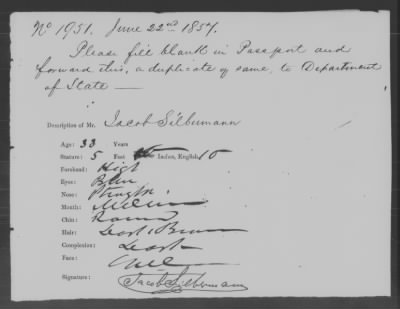 No 1951. June 22nd 1857.
Please fill blank in Passport and
forward this, a duplicate of same, to Department
of State —
Description of Mr. Jacob Silbermann
Age: 33 Years
Stature: 5 Feet Inches, English, 10
Forehead: High
Eyes: Blue
Nose: Straight
Mouth: Medium
Chin: Round
Hair: Dark Brown
Complexion: Dark
Face:
Signature: Jacob Silbermann